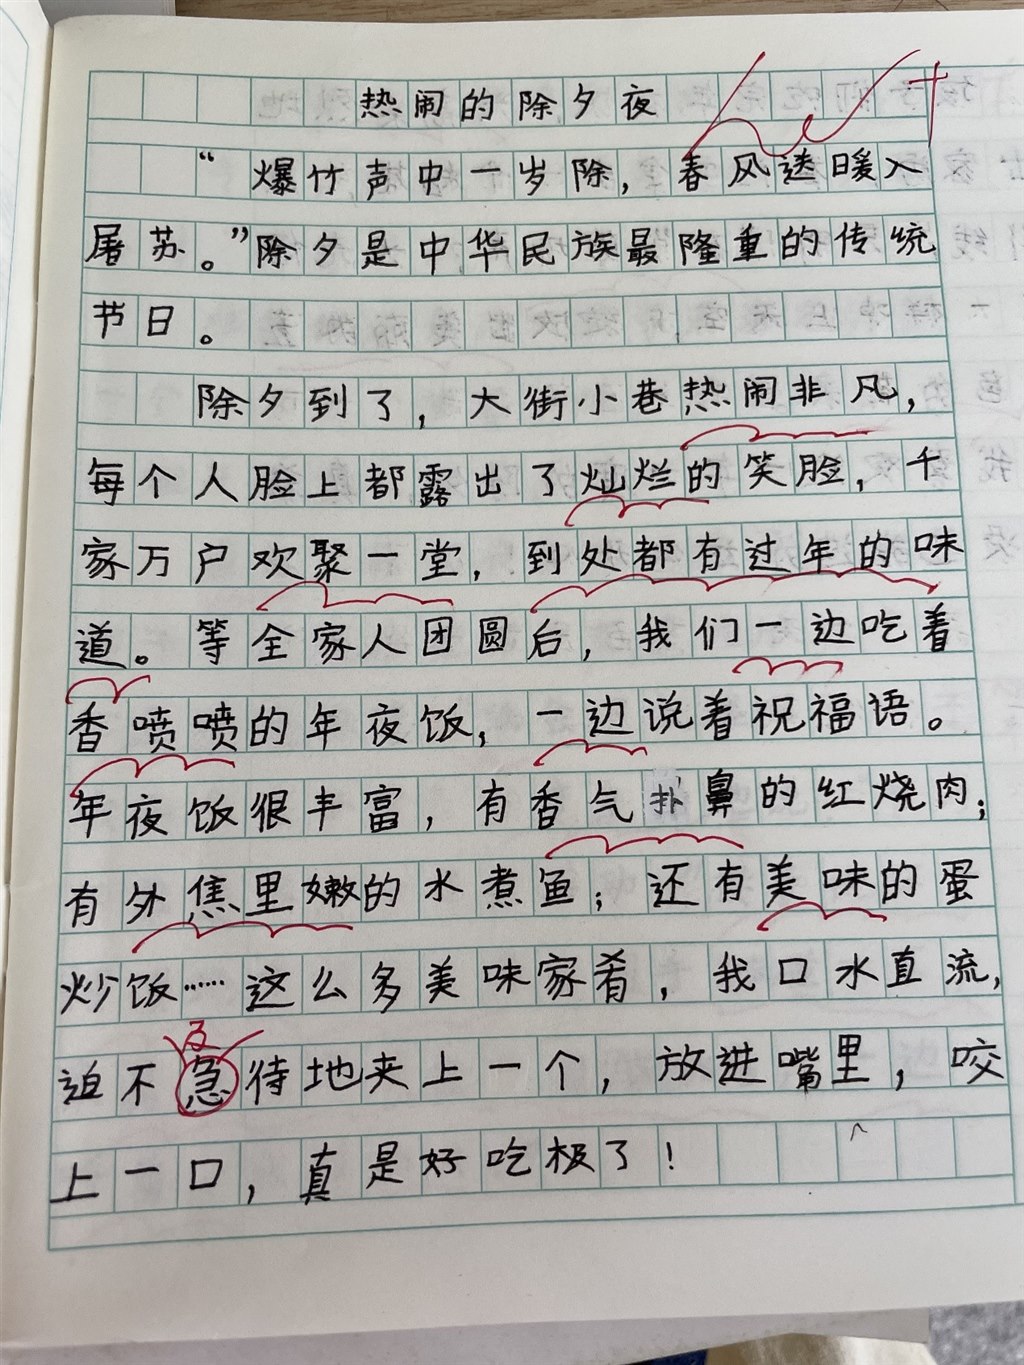 热闹的除夕夜
“爆竹声中一岁除，春风送暖入
屠苏。”除夕是中华民族最隆重的传统
节日。
除夕到了，大街小巷热闹非凡，
每个人脸上都露出了灿烂的笑脸，千
家万户欢聚一堂，到处都有过年的味
道。等全家人团圆后，我们一边吃着
香喷喷的年夜饭，一边说着祝福语。
年夜饭很丰富，有香气扑鼻的红烧肉；
有外焦里嫩的水煮鱼；还有美味的蛋
炒饭……这么多美味家肴，我口水直流，
及
迫不急待地夹上一个，放进嘴里，咬
上一口，真是好吃极了！